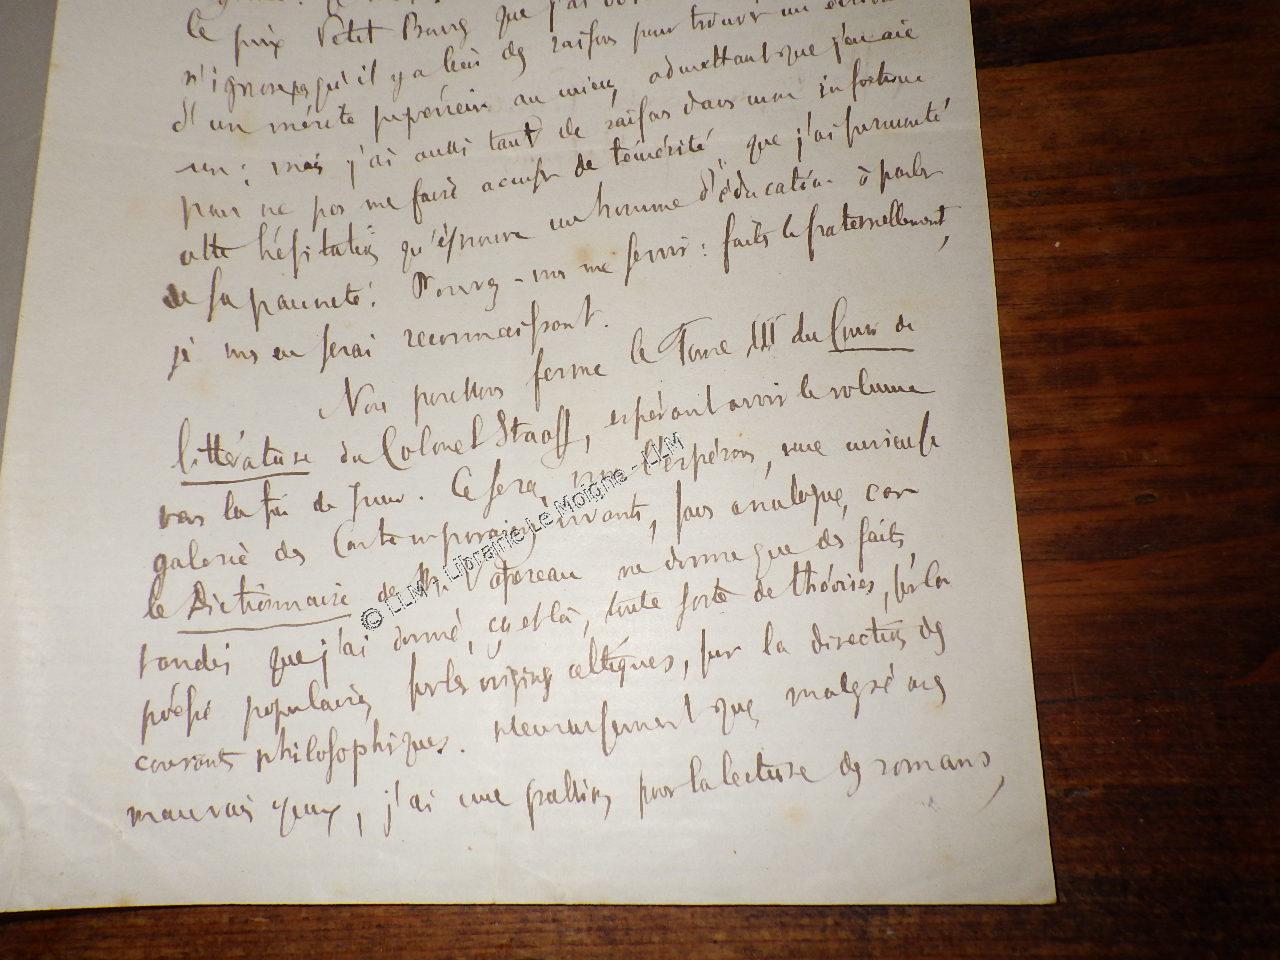 le prix Petit Bourg que j'ai
n'ignore pas qu'il y a bien des raisons pour trouver un écrivain
d'un mérite supérieur au mien, admettant que j'en aie
un ; mais j'ai aussi tant de raisons dans mon infortune
pour ne pas me faire accuser de témérité que j'ai surmonté
cette hésitation qu'éprouve un homme d'éducation à parler
de sa pauvreté. Pouvez-vous me servir : faites le fraternellement,
je vous en serai reconnaissant.
Nous poussons ferme le Tome III du Cours de
littérature du Colonel Staaff, espérant avoir le volume
vers la fin de Juin. Ce sera, nous l'espérons, une curieuse
galerie des Contemporains vivants, sans analogue, car
le Dictionnaire de M. Vapereau ne donne que des faits,
tandis que j'ai donné, çà et là, toute sorte de théories, sur la
poésie populaire, sur les origines celtiques, sur la direction des
courants philosophiques. Heureusement que, malgré mes
mauvais yeux, j'ai une passion pour la lecture des romans,
© LLM - Librairie Le Moigne - LLM